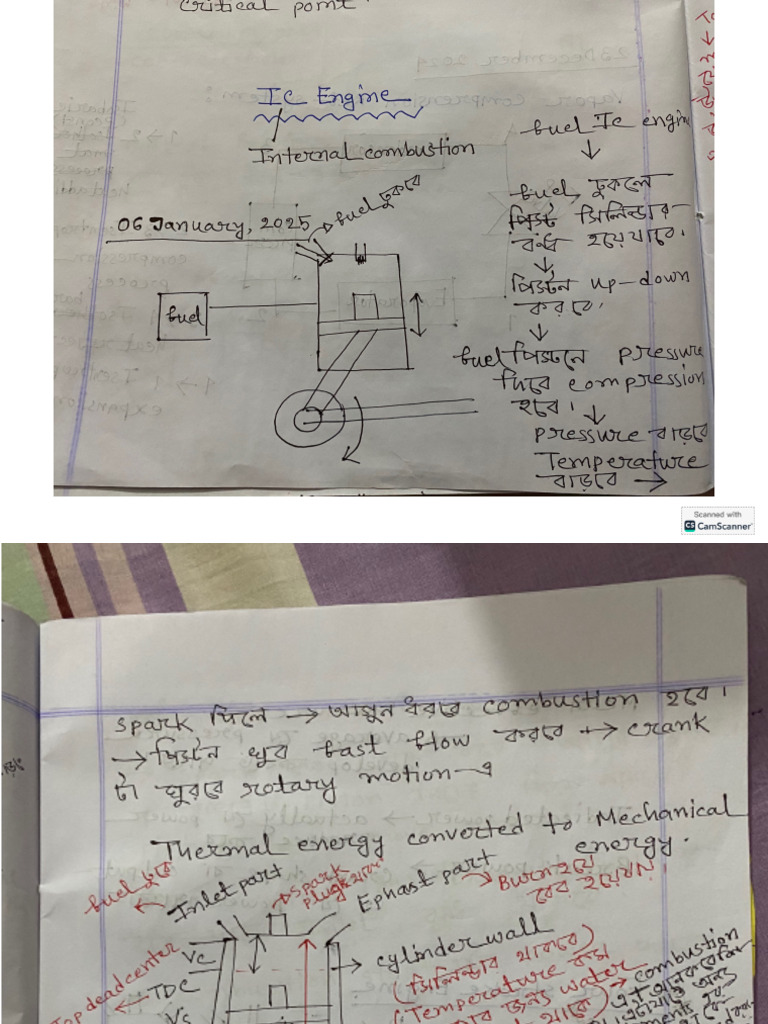 Critical point
IC Engine
Internal combustion
06 January, 2025
fuel ঢুকবে
fuel
fuel Ic engin
fuel ঢুকলে
পিস্ট সিলিন্ডার
বন্ধ হয়ে যাবে।
পিস্টন up-down
করবে।
fuel পিস্টনে pressure
দিবে compression
হবে।
pressure বাড়বে
Temperature
বাড়বে →
Scanned with
CS CamScanner
spark দিলে → আগুন ধরবে combustion হবে।
→ পিস্টন খুব fast flow করবে → crank
টা ঘুরবে rotary motion-এ
Thermal energy converted to Mechanical
energy.
fuel ঢুকে
Inlet part
spark
plug থাকে
Exhast part
Burn হয়ে
বের হয়ে যায়।
Vc
TDC
Vs
Top dead center
cylinder wall
(সিলিন্ডার থাকবে)
(Temperature কম
জন্য water
combustion